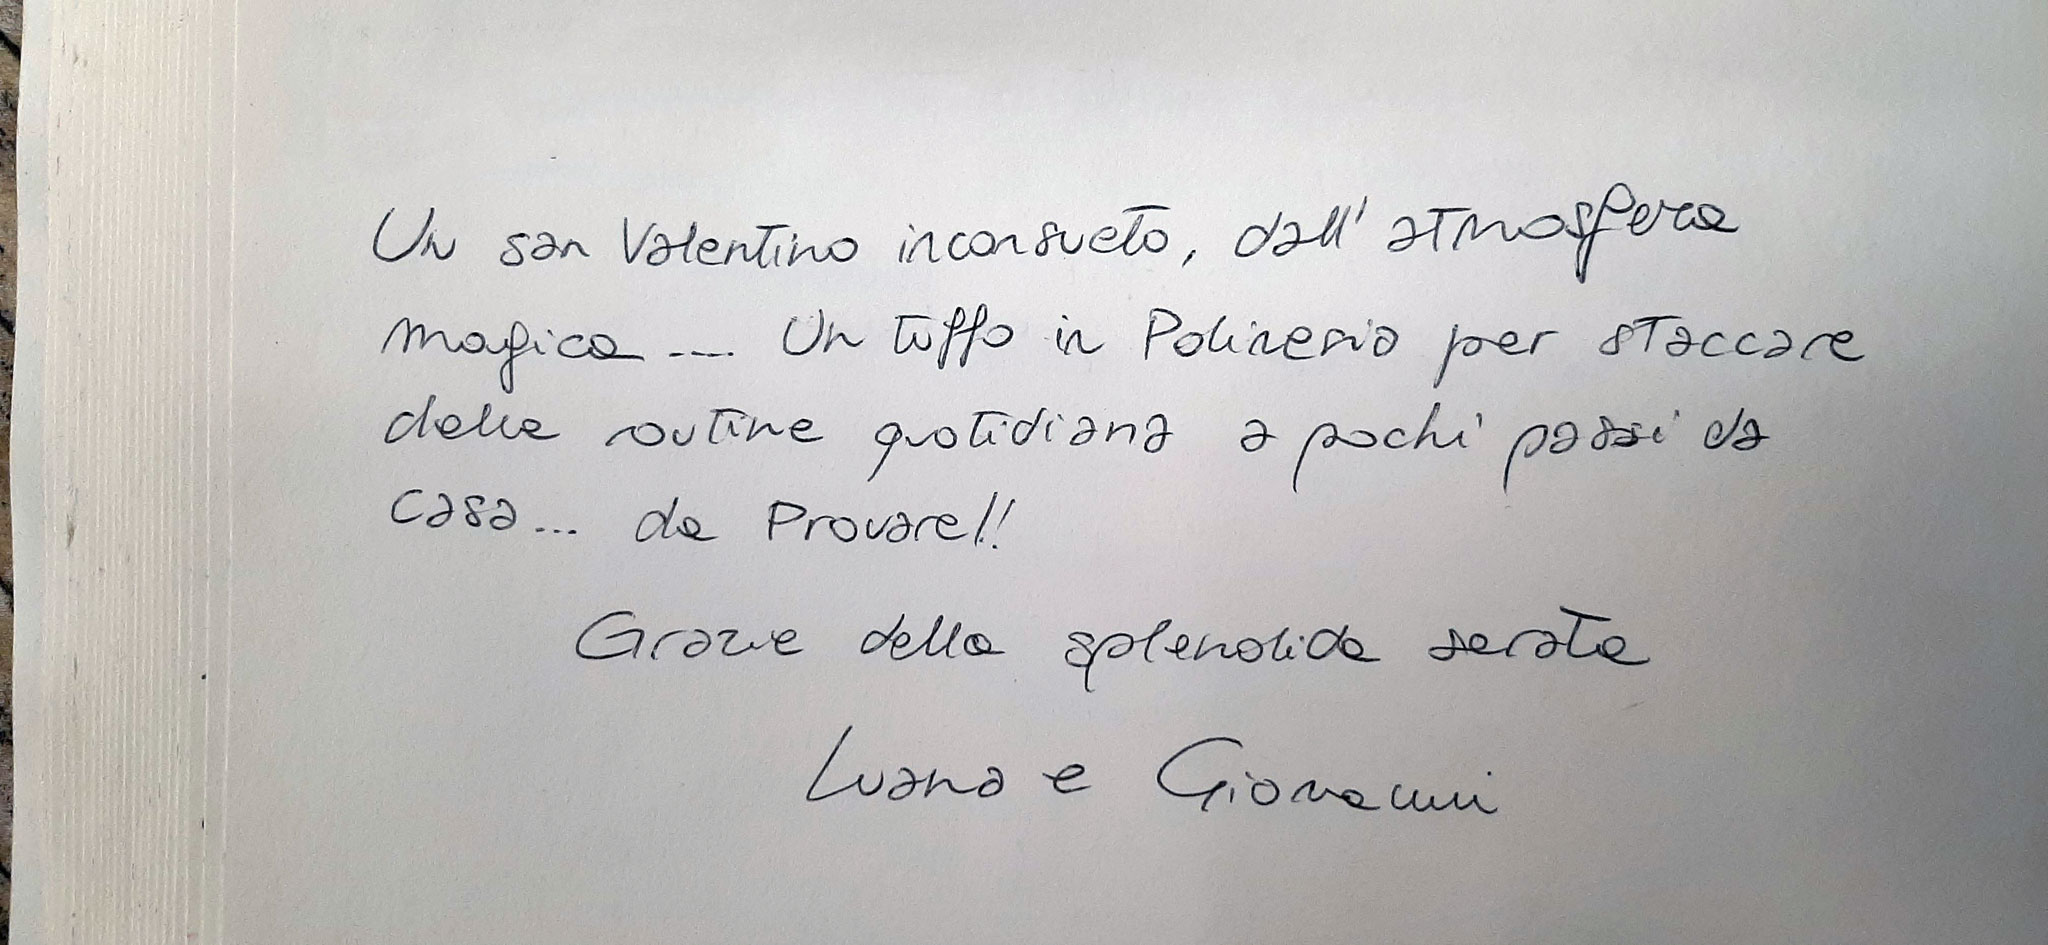 Un san Valentino inconsueto, dall'atmosfera
magica .... Un tuffo in Polinesia per staccare
dalla routine quotidiana a pochi passi da
casa... da Provare!!
Grazie della splendida serata
Luana e Giovanni